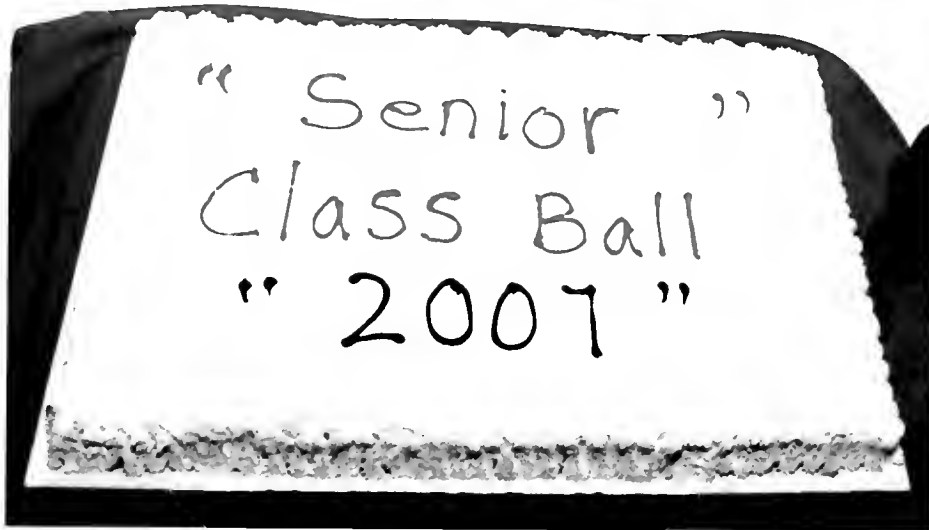 " Senior "
Class Ball
" 2007 "